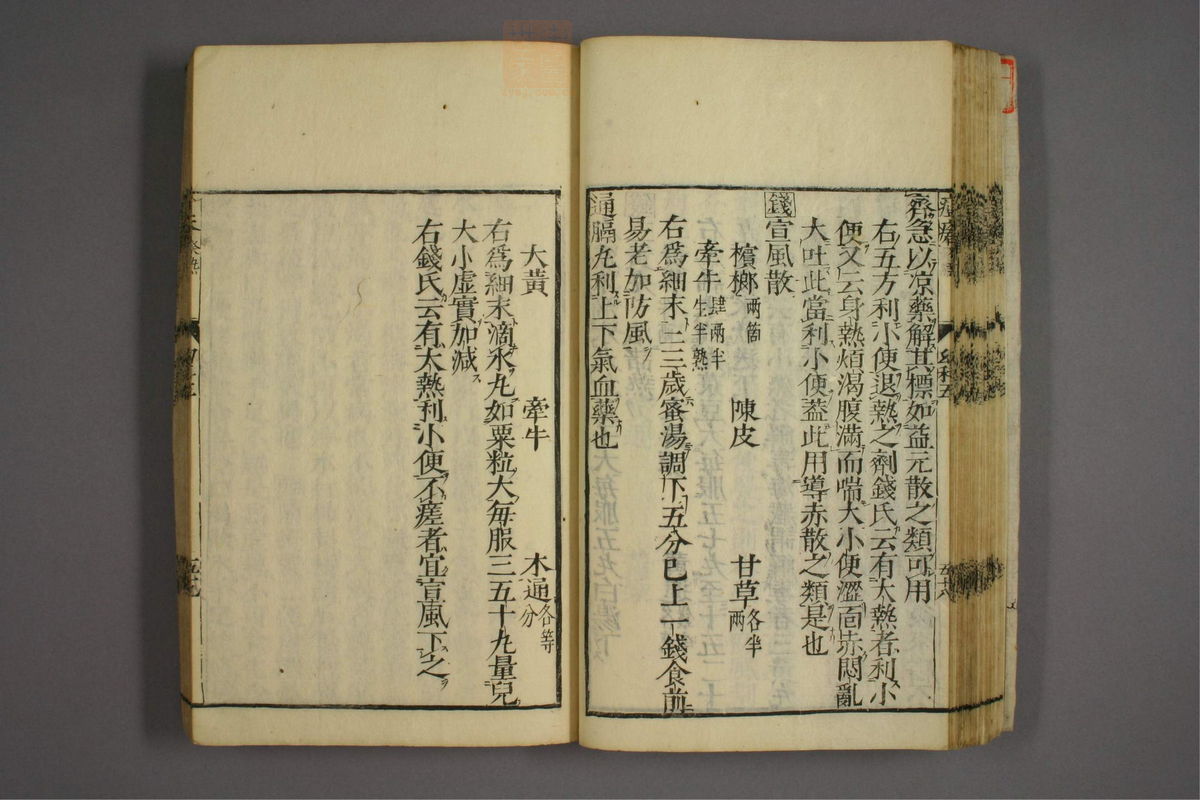 齊急以涼藥解其標如益元散之類可用
右五方利小便退熱之劑錢氏云有大熱者利小
便又云身熱煩渴腹滿而喘大小便澀面赤悶亂
大吐此當利小便葢此用導赤散之類是也
錢宣風散
檳榔兩箇 陳皮 甘草各半兩
牽牛肆兩半生半熟
右爲細末二三歲蜜湯調下五分已上一錢食前
易老加防風
通膈丸利上下氣血藥也
大黃 牽牛 木通各等分
右爲細末滴水丸如粟粒大每服三五十丸量兒
大小虛實加減
右錢氏云有大熱利小便不瘥者宜宣風下之